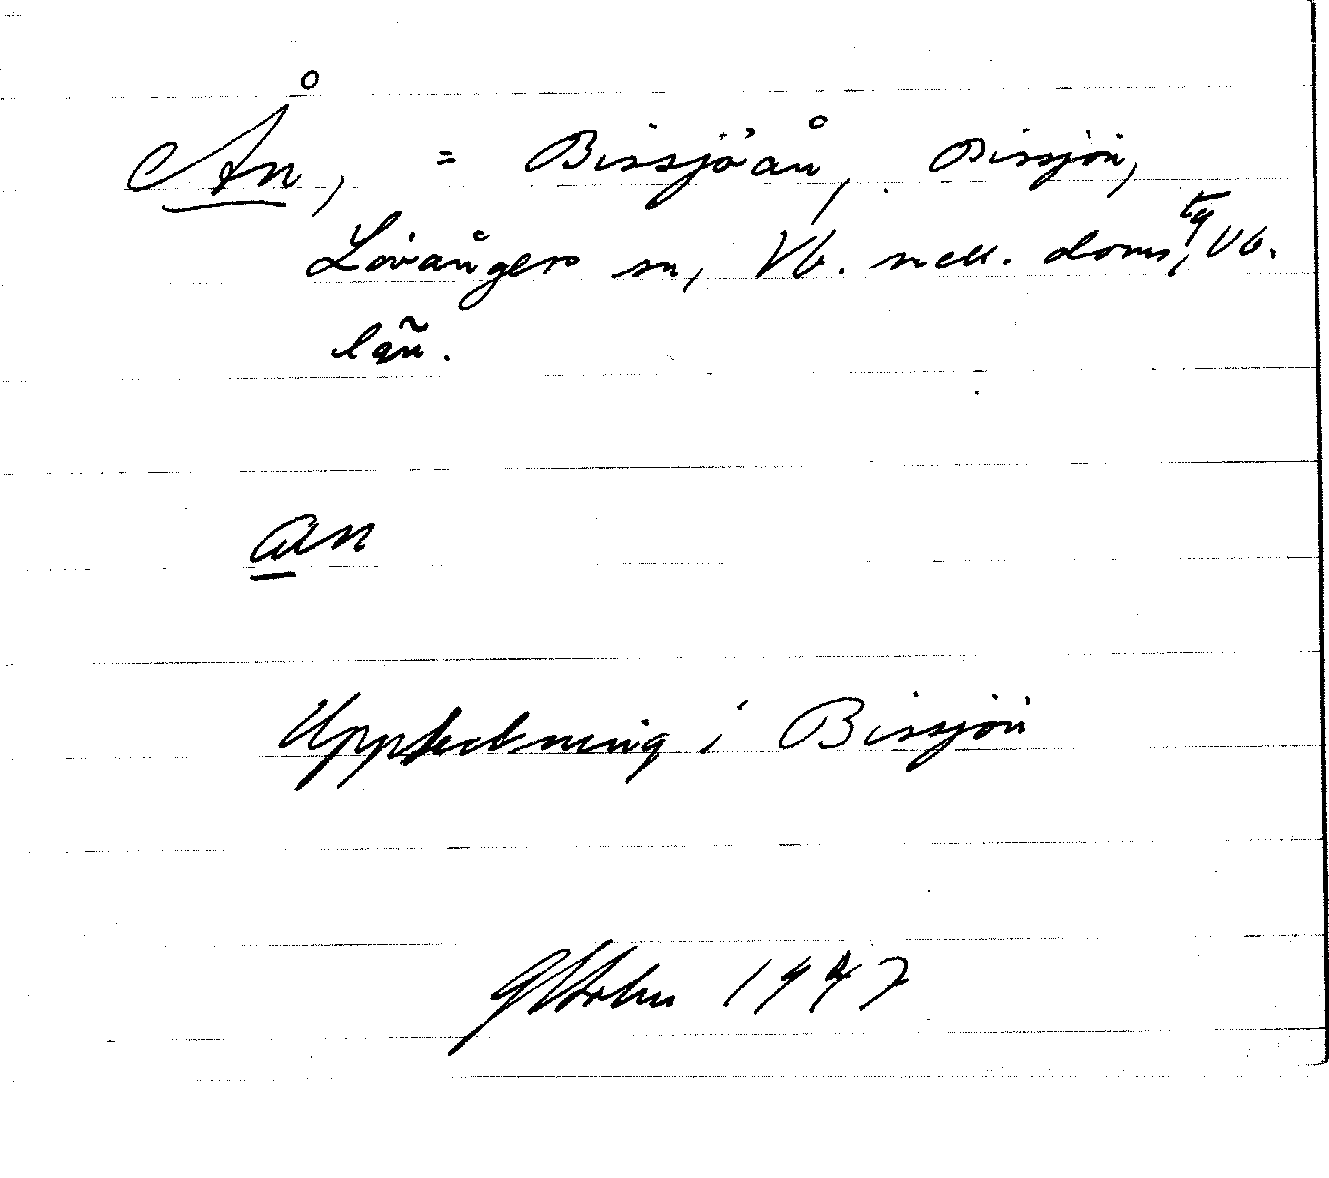 Ån, = Bissjöån, Bissjön,
Lövångers sn, Vb. mell. doms. tg, Vb.
län.
an
Uppteckning i Bissjön
GHolm 1947